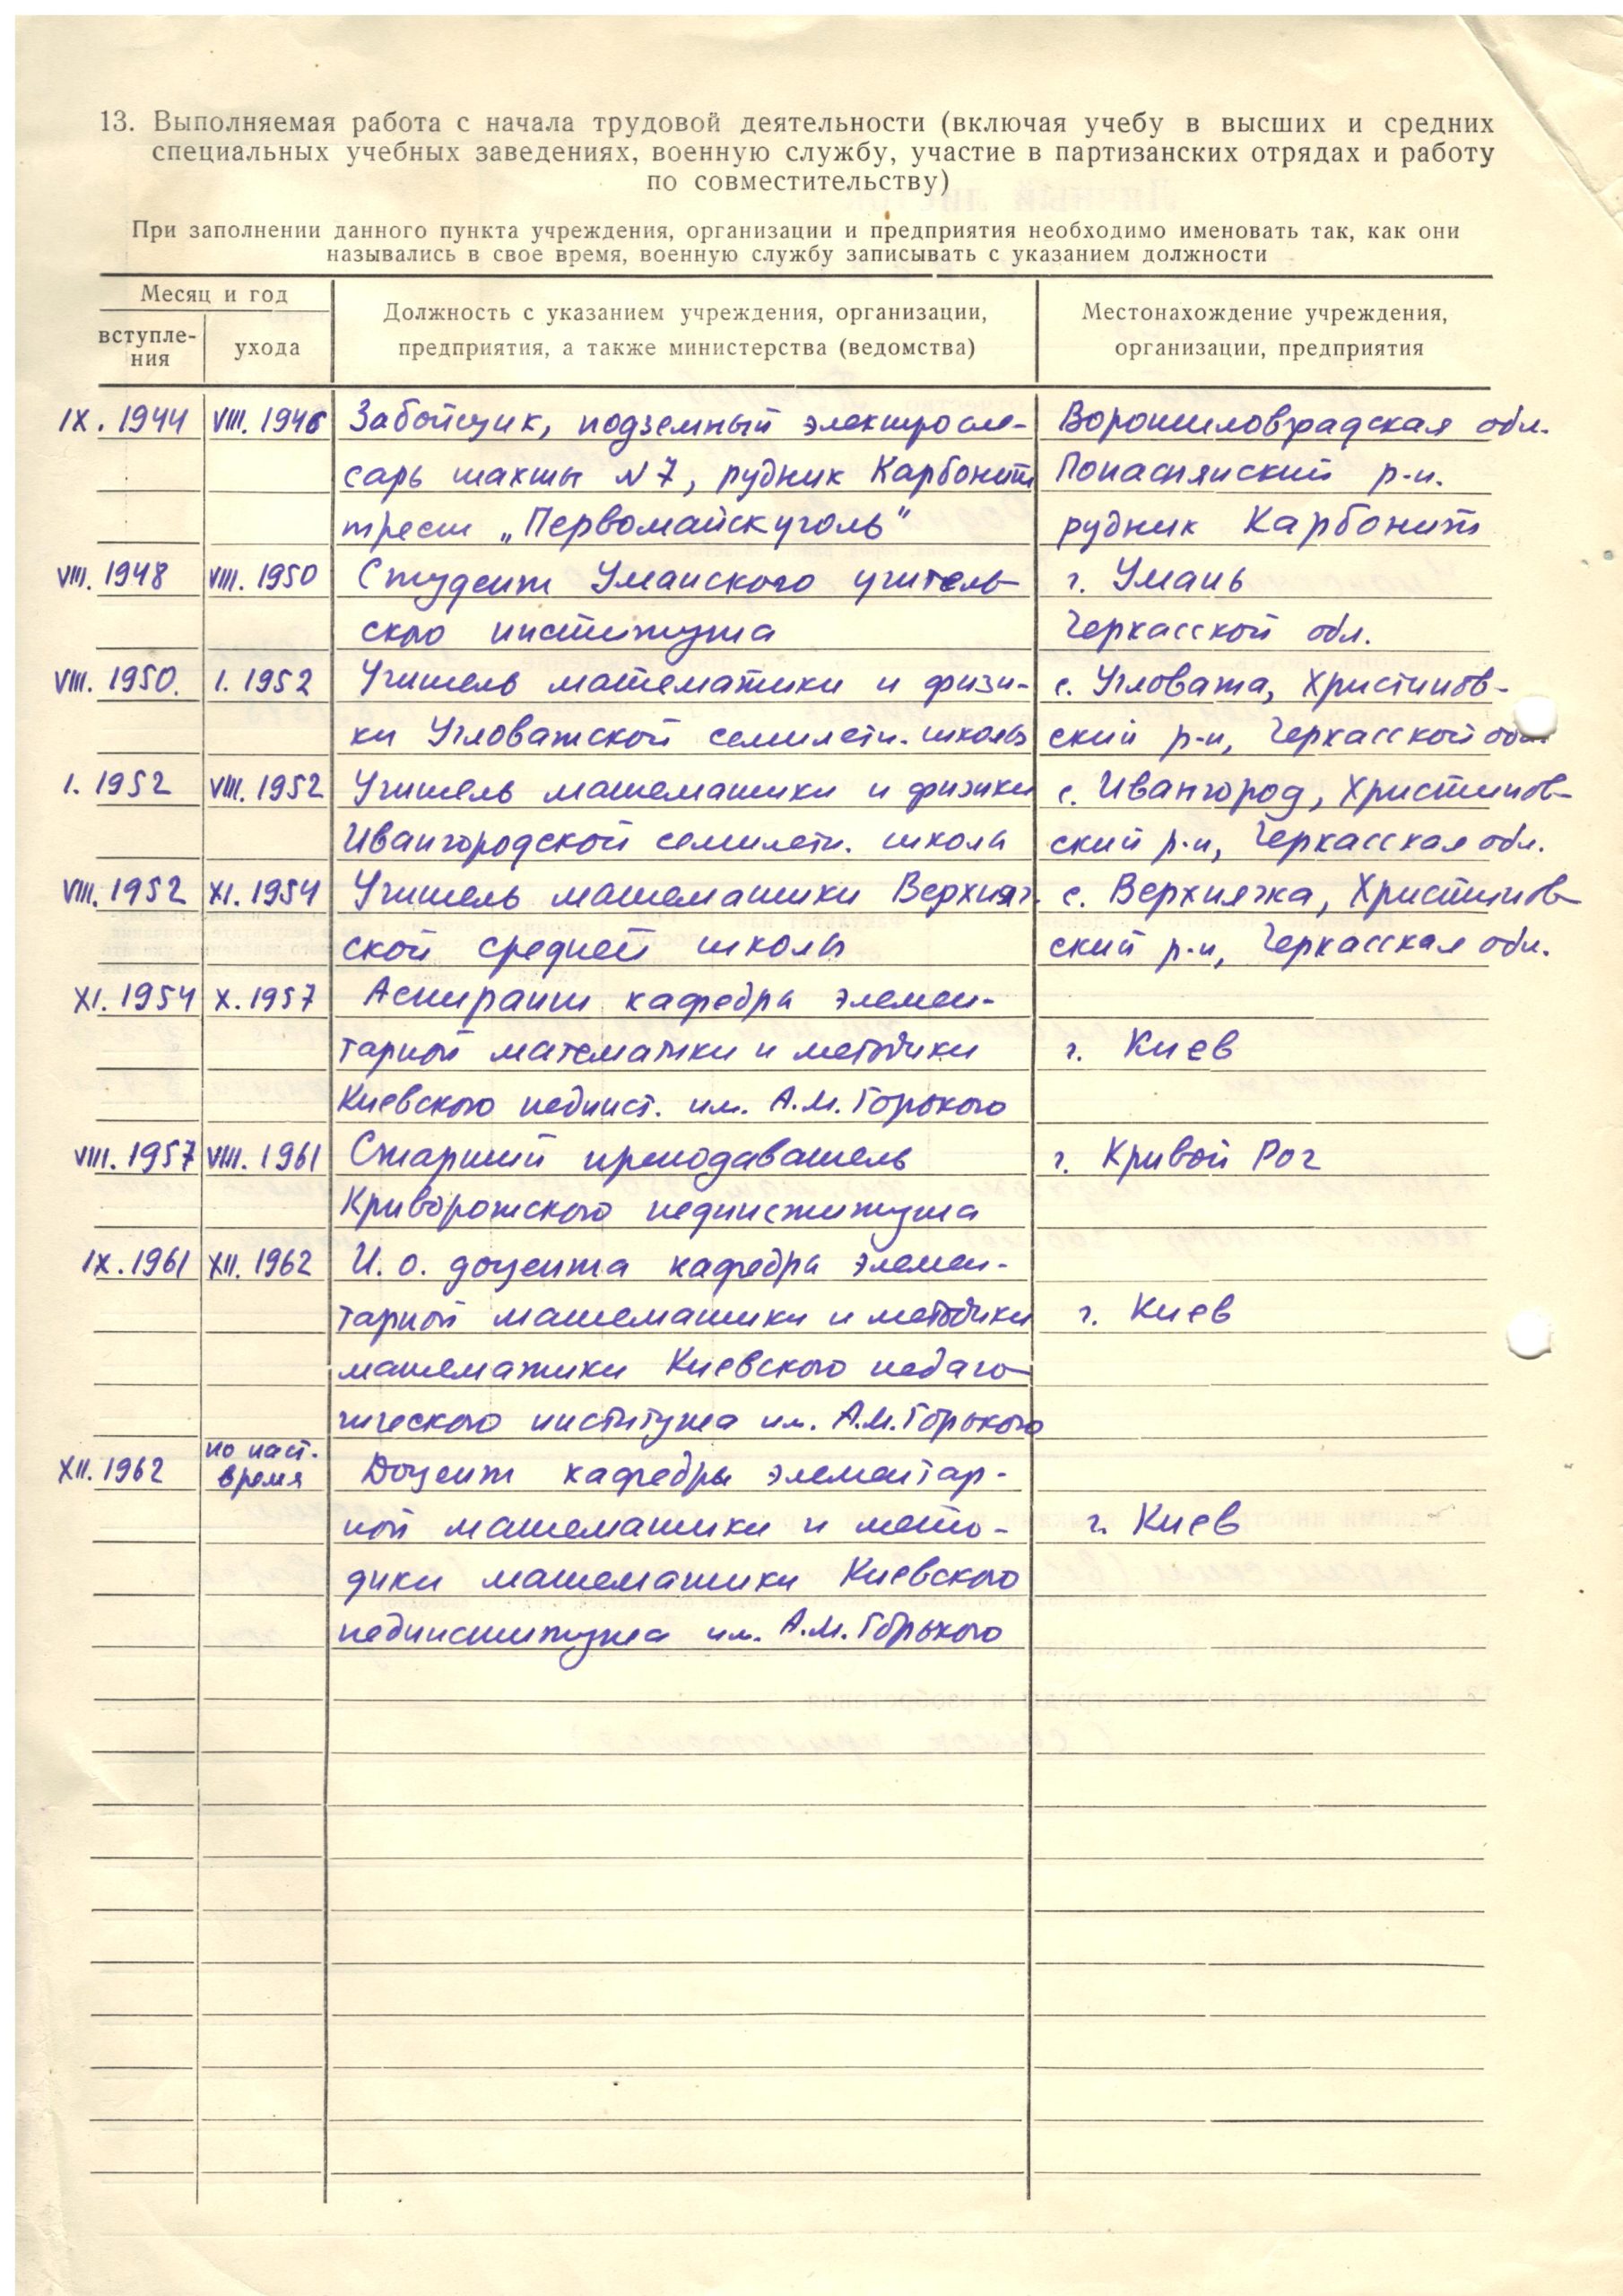 13. Выполняемая работа с начала трудовой деятельности (включая учебу в высших и средних
специальных учебных заведениях, военную службу, участие в партизанских отрядах и работу
по совместительству)
При заполнении данного пункта учреждения, организации и предприятия необходимо именовать так, как они
назывались в свое время, военную службу записывать с указанием должности
Месяц и год
вступле-
ния
ухода
Должность с указанием учреждения, организации,
предприятия, а также министерства (ведомства)
Местонахождение учреждения,
организации, предприятия
IX. 1944 VIII. 1946 Забойщик, подземный электросле- Ворошиловградская обл.
сарь шахты N7, рудник Карбонит Попаснянский р-н.
трест „Первомайскуголь" рудник Карбонит
VIII. 1948 VIII. 1950 Студент Уманского учитель- г. Умань
ского института Черкасской обл.
VIII. 1950. I. 1952 Учитель математики и физи- с. Угловата, Христинов-
ки Угловатской семилетн. школы ский р-н, Черкасской обл.
I. 1952 VIII. 1952 Учитель математики и физики с. Ивангород, Христинов-
Ивангородской семилетн. школы ский р-н, Черкасская обл.
VIII. 1952 XI. 1954 Учитель математики Верхняч- с. Верхнячка, Христинов-
ской средней школы ский р-н, Черкасская обл.
XI. 1954 X. 1957 Аспирант кафедры элемен-
тарной математики и методики г. Киев
Киевского пединст. им. А.М. Горького
VIII. 1957 VIII. 1961 Старший преподаватель г. Кривой Рог
Криворожского пединститута
IX. 1961 XII. 1962 И. о. доцента кафедры элемен-
тарной математики и методики г. Киев
математики Киевского педаго-
гического института им. А.М. Горького
XII. 1962 по наст. время Доцент кафедры элементар-
ной математики и мето- г. Киев
дики математики Киевского
пединститута им. А.М. Горького